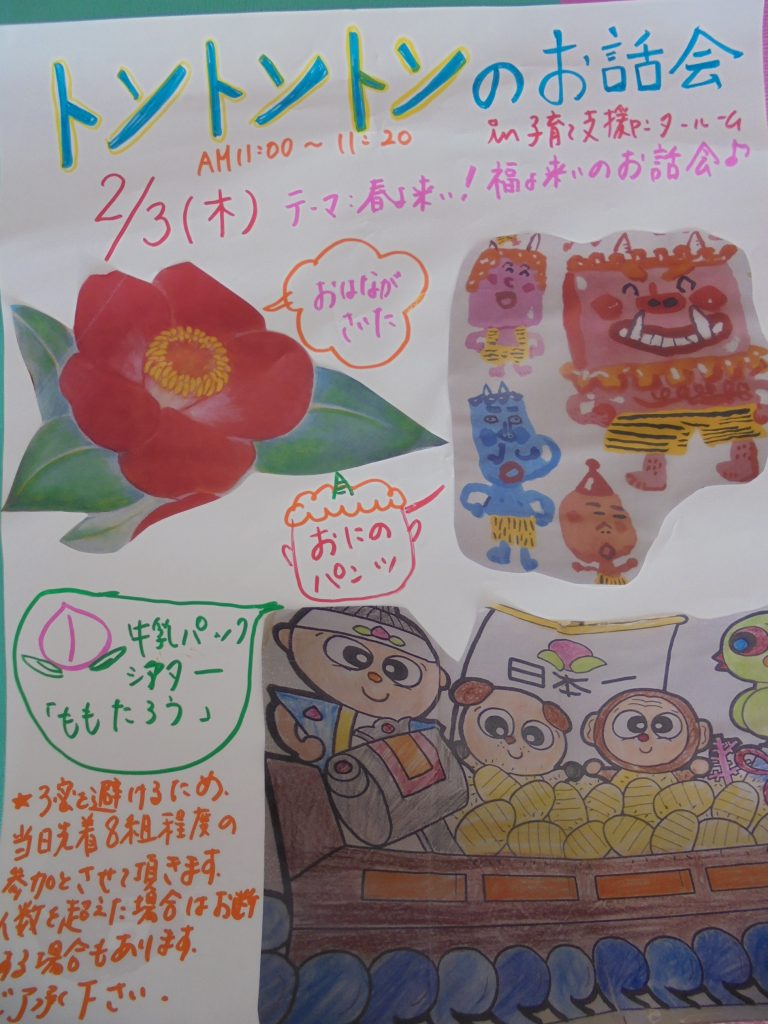 トントントンのお話会
in 子育て支援センタールーム
AM11:00〜11:20
2/3(木) テーマ:春よ来い!福よ来いのお話会♪
おはなが
さいた
おにの
パンツ
牛乳パック
シアター
「ももたろう」
日本一
★3密を避けるため、
当日先着8組程度の
参加とさせて頂きます。
人数を超えた場合はお断り
する場合もあります。
ご了承下さい。